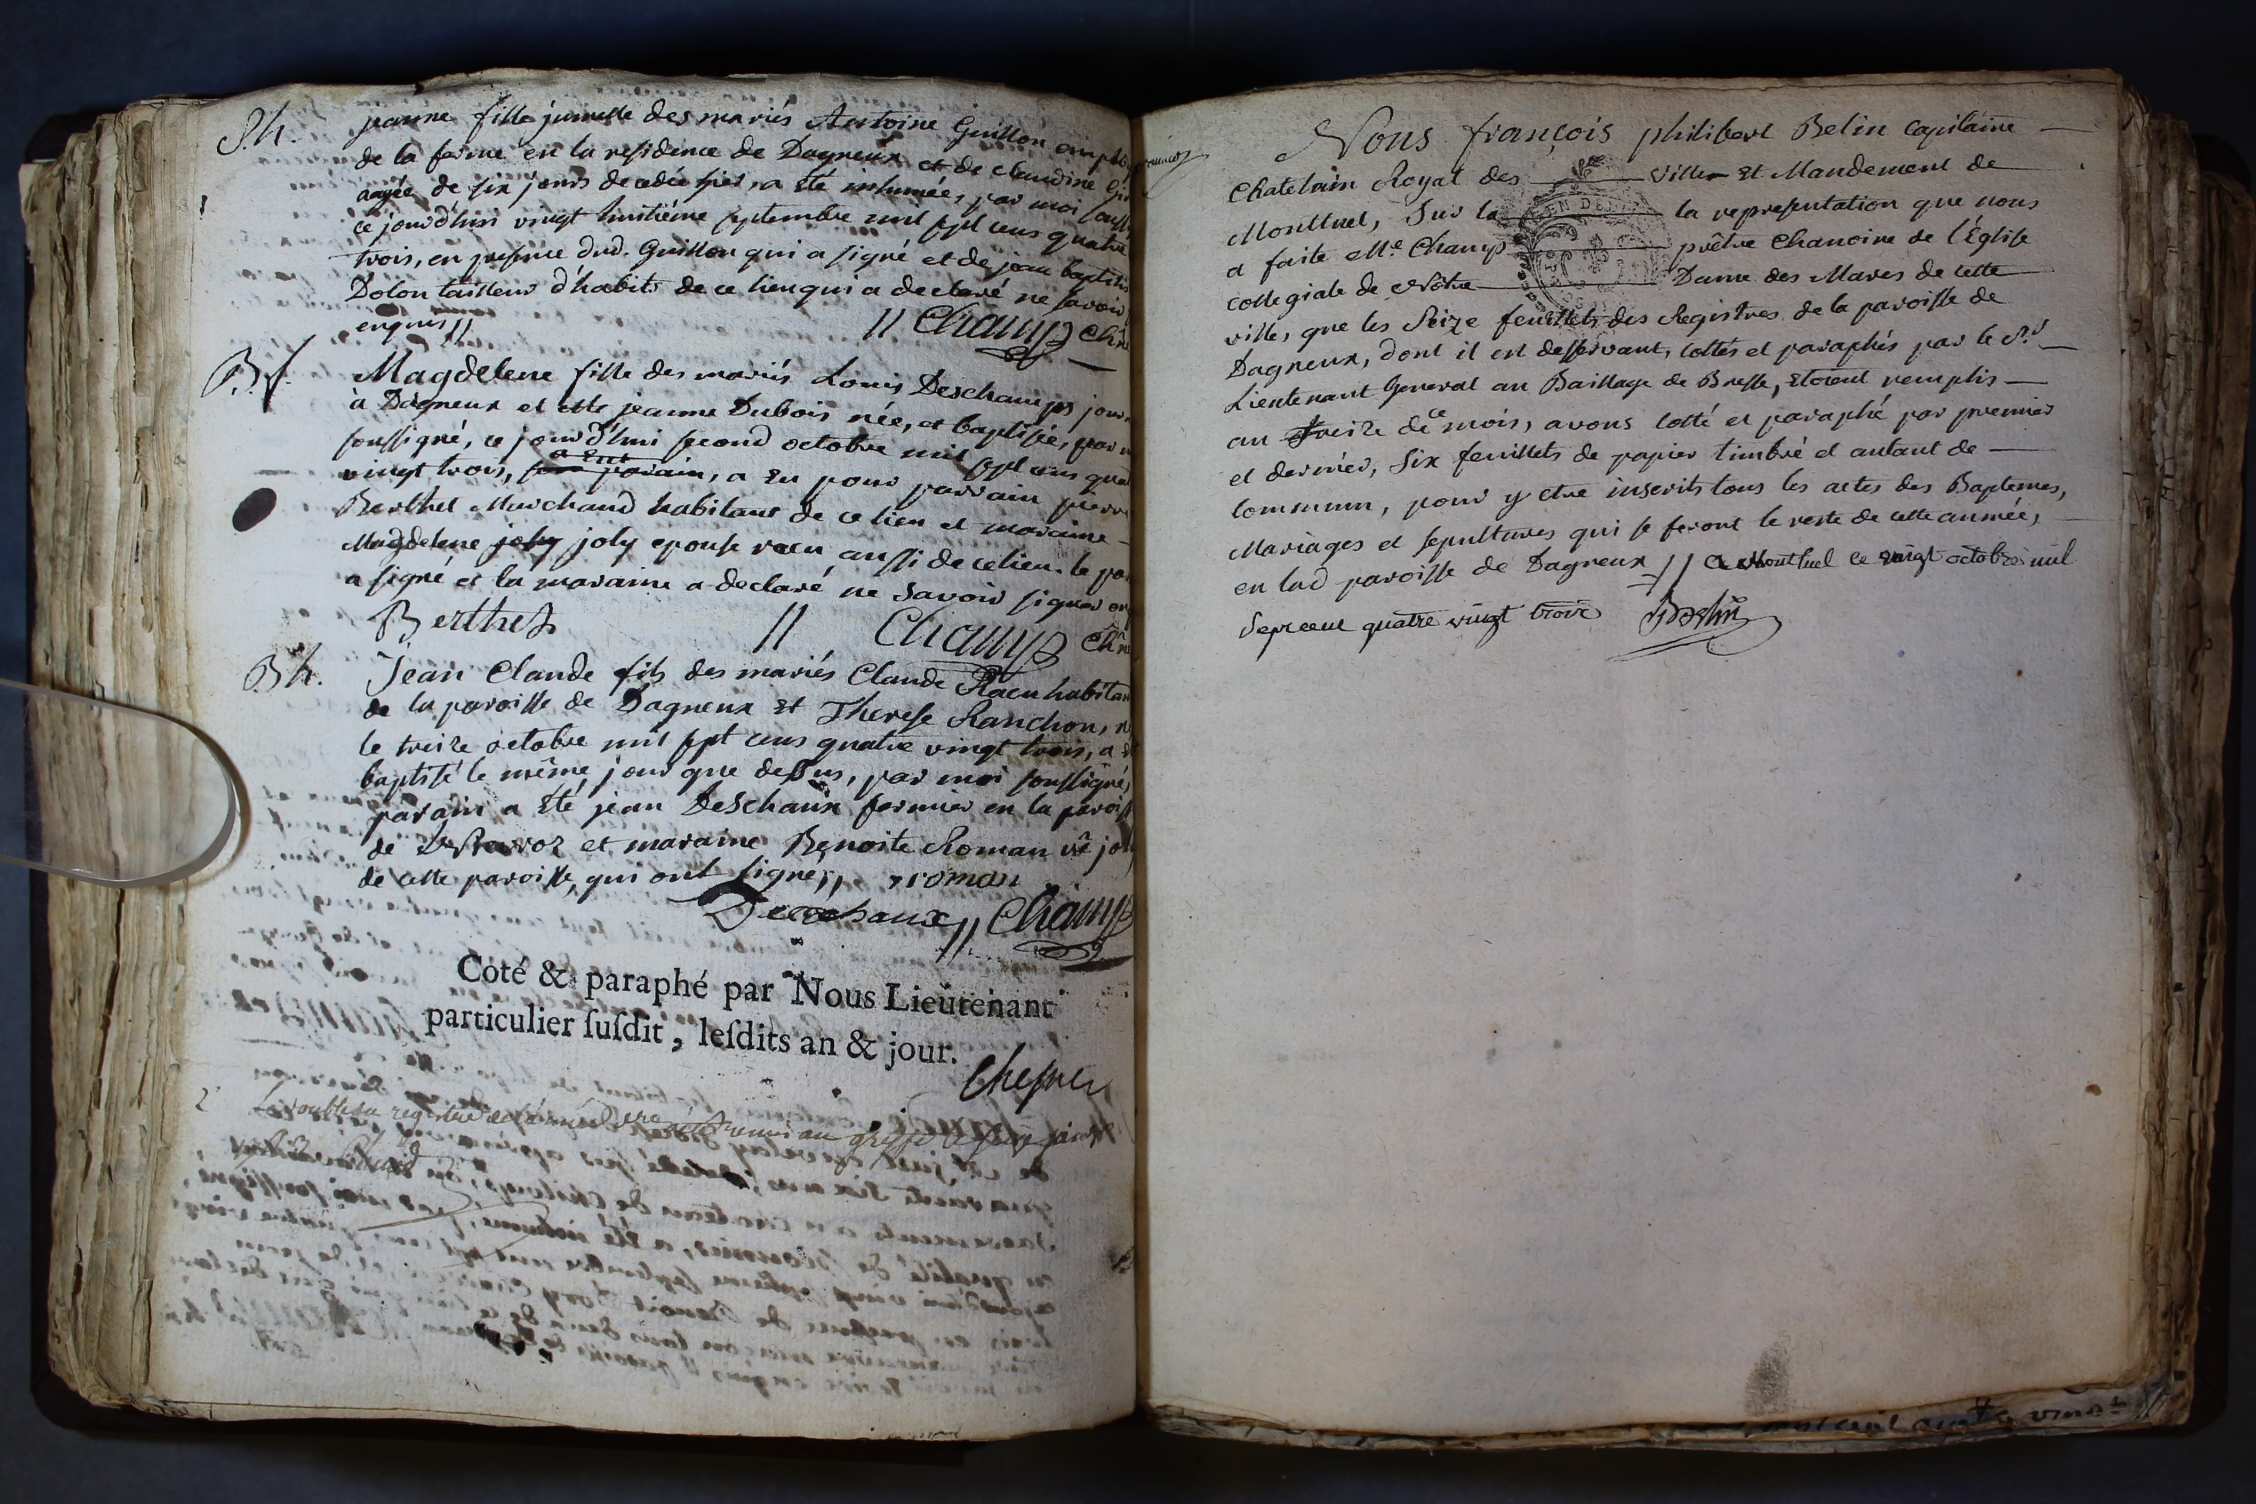 S.h. jeanne fille jumelle des mariés Antoine Guillon emplo
de la ferme en la residence de Dagneux et de claudine
agée de six jours decedée hier, a été inhumée, par moi souss
ce jourd'hui vingt huitiéme septembre mil sept cens quatre
trois, en presence dud. Guillon qui a signé et de jean baptiste
Dolon tailleur d'habits de ce lieu qui a declaré ne savoir
enquis //
// Champ chn
B.f. Magdelene fille des mariés Louis Deschamps jour
à Dagneux et de jeanne Dubois née, et baptisée, par m
soussigné, ce jourd'hui second octobre mil sept cens qua
vingt trois, parain, a eu pour parrain pierre
Berthet Marchand habitant de ce lieu et maraine
Magdelene joly joly epouse racu aussi de ce lieu. le par
a signé et la maraine a declaré ne savoir signer en
Berthet // Champ chn
B.h. Jean Claude fils des mariés Claude Racu habitan
de la paroisse de Dagneux et Therese Ranchon, n
le treize octobre mil sept cens quatre vingt trois, a
baptisé le même jour que dessus, par moi soussigné,
parain a été jean Deschaux fermier en la paroiss
de et maraine Benoite Roman vê jo
de cette paroisse, qui ont signe // roman
Deschaux // Champ
Coté & paraphé par Nous Lieutenant
particulier ſuſdit, leſdits an & jour.
Chesne
Nous françois philibert Belin Capitaine
Chatelain Royal des Ville et Mandement de
Montluel, Sur la la representation que nous
a faite Me. Champ prêtre Chanoine de l'Église
Collegiale de Nôtre Dame des Mares de cette
ville, que les Seize feuillets des Registres de la paroisse de
Dagneux, dont il est desservant, cottés et paraphés par le Sr.
Lieutenant General au Baillage de Bresse, etoient remplis
au treize de ce mois, avons cotté et paraphé par premier
et dernier, Six feuillets de papier timbré et autant de
Commun, pour y etre inscrits tous les actes des Baptemes,
Mariages et sepultures qui se feront le reste de cette année,
en lad paroisse de Dagneux // a Montluel ce vingt octobre mil
Sept cent quatre vingt trois Belin